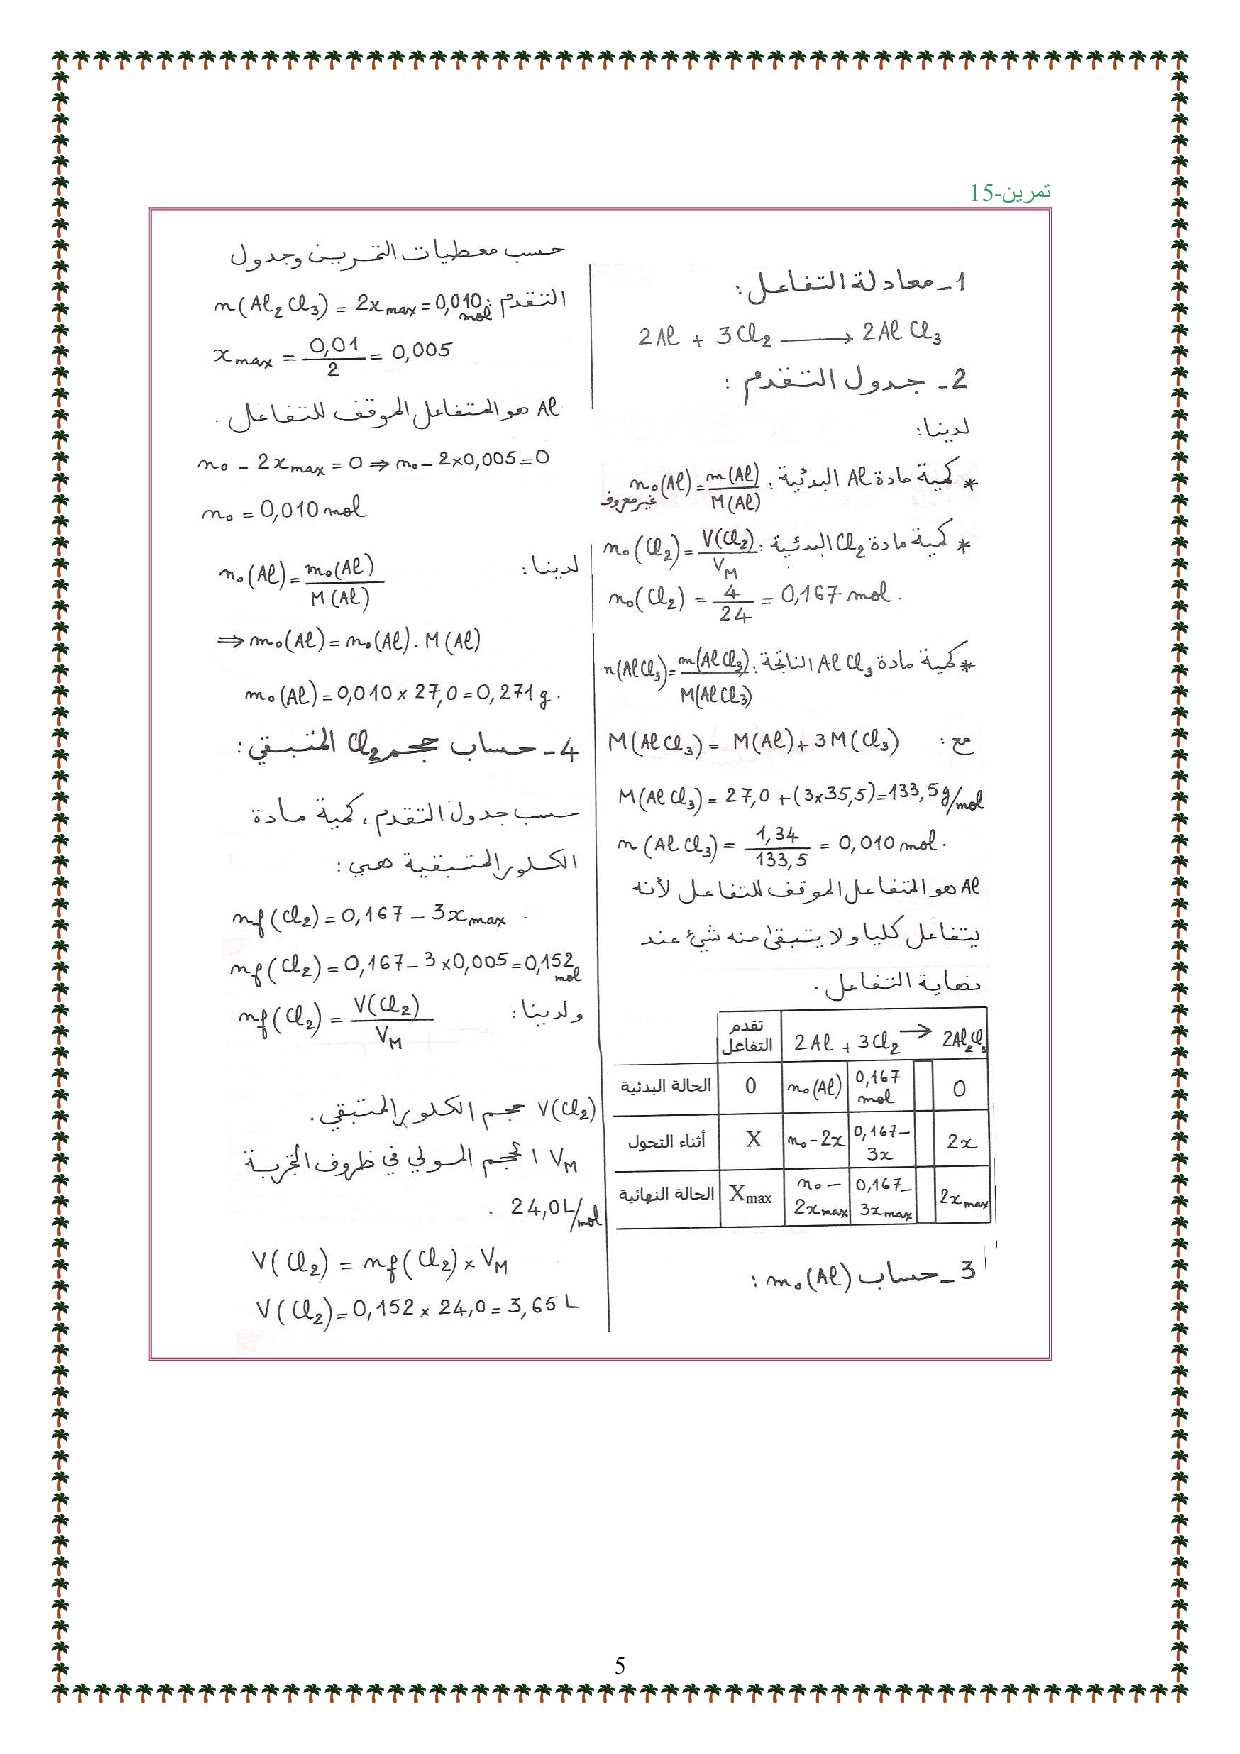 تمرين-15
1_ معادلة التفاعل :
2Al + 3Cl₂ ⟶ 2AlCl₃
2_ جدول التقدم :
لدينا:
* كمية مادة Al البدئية . n₀(Al) = m(Al) / M(Al)
غير معروف
* كمية مادة Cl₂ البدئية . n₀(Cl₂) = V(Cl₂) / V_M
n₀(Cl₂) = 4 / 24 = 0,167 mol .
* كمية مادة AlCl₃ الناتجة . n(AlCl₃) = m(AlCl₃) / M(AlCl₃)
مع : M(AlCl₃) = M(Al) + 3M(Cl₃)
M(AlCl₃) = 27,0 + (3x35,5) = 133,5 g/mol
n(AlCl₃) = 1,34 / 133,5 = 0,010 mol .
Al هو المتفاعل الموقف للتفاعل لأنه
يتفاعل كليا ولا يتبقى منه شيئ عند
نهاية التفاعل .
تقدم التفاعل 2Al + 3Cl₂ → 2Al₂Cl₃
الحالة البدئية 0 n₀(Al) 0,167 mol 0
أثناء التحول X n₀-2x 0,167-3x 2x
الحالة النهائية Xmax n₀-2xmax 0,167-3xmax 2xmax
3_ حساب m₀(Al) :
حسب معطيات التمرين وجدول
التقدم : n(Al₂Cl₃) = 2xmax = 0,010 mol
xmax = 0,01 / 2 = 0,005
Al هو المتفاعل الموقف للتفاعل .
n₀ - 2xmax = 0 ⇒ n₀ - 2x0,005 = 0
n₀ = 0,010 mol
لدينا : n₀(Al) = m₀(Al) / M(Al)
⇒ m₀(Al) = n₀(Al) . M(Al)
m₀(Al) = 0,010 x 27,0 = 0,271 g .
4_ حساب حجم Cl₂ المتبقي :
حسب جدول التقدم ، كمية مادة
الكلور المتبقية هي :
nf(Cl₂) = 0,167 - 3xmax .
nf(Cl₂) = 0,167 - 3x0,005 = 0,152 mol
ولدينا : nf(Cl₂) = V(Cl₂) / V_M
V(Cl₂) حجم الكلور المتبقي .
V_M الحجم المولي في ظروف التجربة
24,0 L/mol .
V(Cl₂) = nf(Cl₂) x V_M
V(Cl₂) = 0,152 x 24,0 = 3,65 L
5